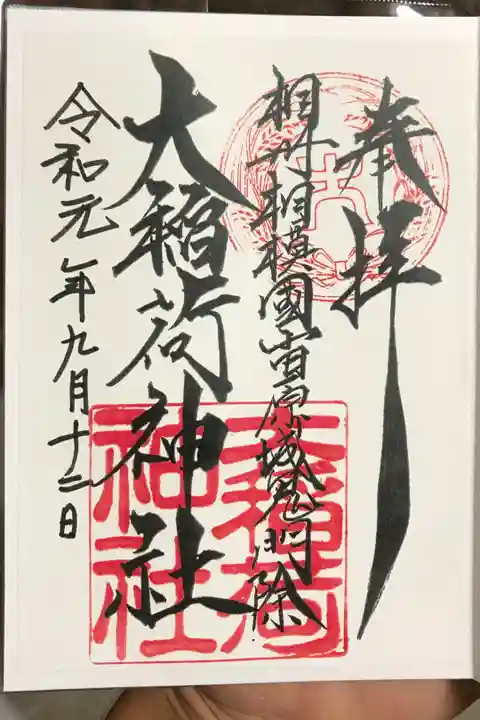 奉拝
相州相模國小田原城鬼門除
大稲荷神社
令和元年九月十二日
大稲荷
神社